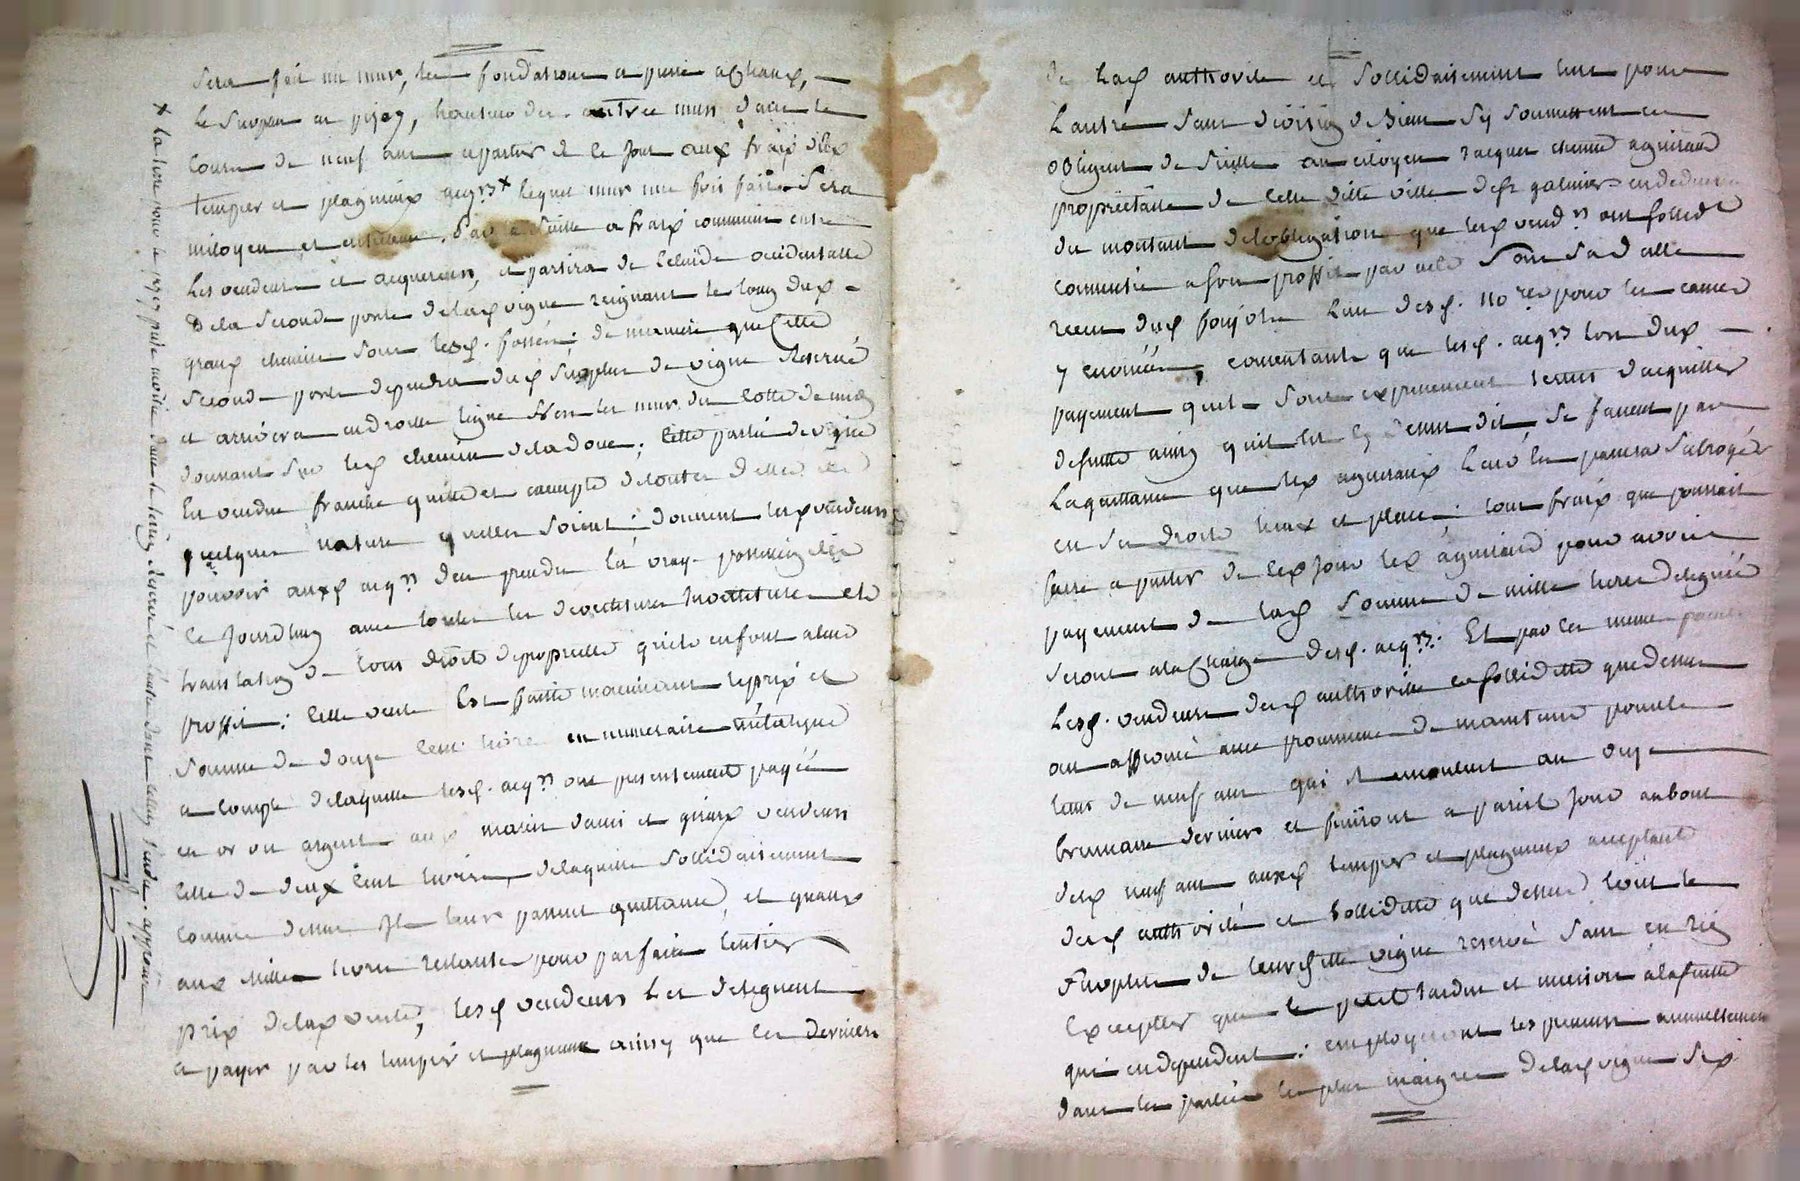 sera fait un mur, les fondations en pierre a chaux,
le surplus en pizey, hauteur des autres murs dans le
cours de neuf ans a partir de ce jour aux frais des
tempier et plagnieux acqrs x lequel mur une fois faite sera
mitoyen et entretenu par la suitte a frais communs entre
les vendeurs et acquereurs, et partira de l'occidentalle
de la seconde porte de lad vigne reignant le long dud
grand chemin sous lesd. de maniere que cette
seconde porte dependra dud surplus de vigne reservé
et arrivera en droitte ligne vers les murs du cotté de midy
donnant sur led chemin de la doue; cette partie de vigne
est vendue franche quitte et exempte de toutes dettes de
quelques nature quelles soient; donnent lesd vendeurs
pouvoir auxd acqrs d'en prendre la vraye possession dès
ce jourdhuy avec toutes les devetitures investitures et
translation de tous droits de proprietté quils en font a leur
proffit; cette vente est faitte moiennant le prix et
somme de douze cent livres en numeraire métalique
a compte de laquelle lesd. acqrs ont presentement payée
en or ou argent aux mariés et giraud vendeurs
celle de deux cent livres, de laquelle sollidairement
comme dessus ils leurs passent quittance, et quand
aux mille livres restantes pour parfaire l'entier
prix de lad vente, lesd vendeurs les deleguent
a payer par les tempier et plagnieux ainsy que ces derniers
x la terre pour le pizey prise moitié dans le terrein reservé et l'autre dans celluy vendu. approuvé
de lad authorité et sollidairement l'un pour
l'autre sans division de biens s'y soumettent et
obligent de suitte au citoyen Jacques agniraud
proprietaire de cette ditte ville de st galmier en deduction
du montant de l'obligation que lesd vendrs ont sollidt
consentie a son proffit par acte sous sa datte
receu dud lun desd. nores pour les causes
y enoncées, consentants que lesd. acqrs lors dud
payement quils sont expressement tenus d'acquitter
de suitte ainsy quil est cy dessus dit, se fassent par
la quittance que led agniraud leur en passera subroger
en ses droits lieux et place; tous frais que pourrait
faire a partir de ced jour led agniraud pour avoir
payement de lad somme de mille livres deleguée
seront a la charge desd. acqrs. Et par ces meme
lesd. vendeurs de lad authorité et solliditté que dessus
ont affermé avec promesse de maintenir pour le
tems de neuf ans qui au onze
brumaire dernier et finiront a pareil jour au bout
desd neuf ans auxd tempier et plagnieux acceptant
de lad authorité et solliditté que dessus tout le
surplus de leur ditte vigne reservé sans en rien
excepter que le petit jardin et maison a la suitte
qui en dependent; employeront les preneurs annuellement
dans les parties les plus maigres de lad vigne six